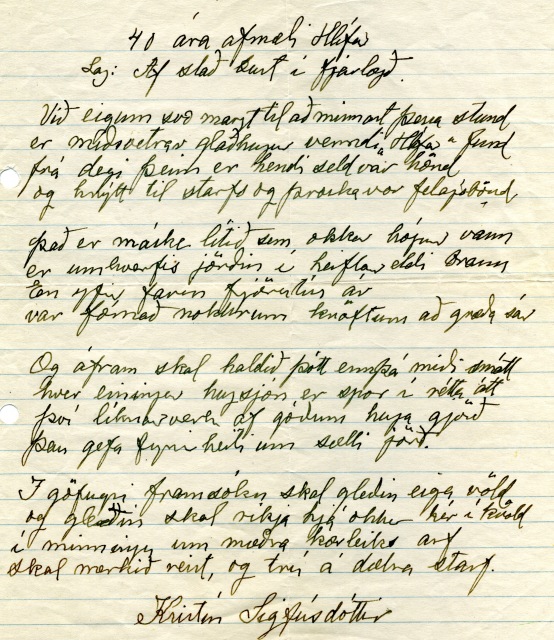 40 ára afmæli Hlífar
Lag: Af stað burt í fjarlægð.
Við eigum svo margt til að minnast þessa stund
er miðsvetrar glaðhugur vermdi „Hlífar" fund
frá degi þeim er hendi seld var hönd
og hnýtt til starfs og þroska vor félagsbönd.
Það er máske lítið sem okkar hópur vann
er umhverfis jörðin í heiftar eldi brann
En yfir farin fjörutíu ár
var fórnað nokkrum kröftum að græða sár
Og áfram skal haldið þótt ennþá miði smátt
hver einingar hugsjón er spor í rétta átt
því líknarverk af góðum huga gjörð
þau gefa fyrirheit um sælli jörð.
Í göfugri framsókn skal gleðin eiga völd
og gleðin skal ríkja hjá okkur hér í kvöld
í minningu um mæðra kærleiks arf
skal merkið reist, og trú á dætra starf.
Kristín Sigfúsdóttir